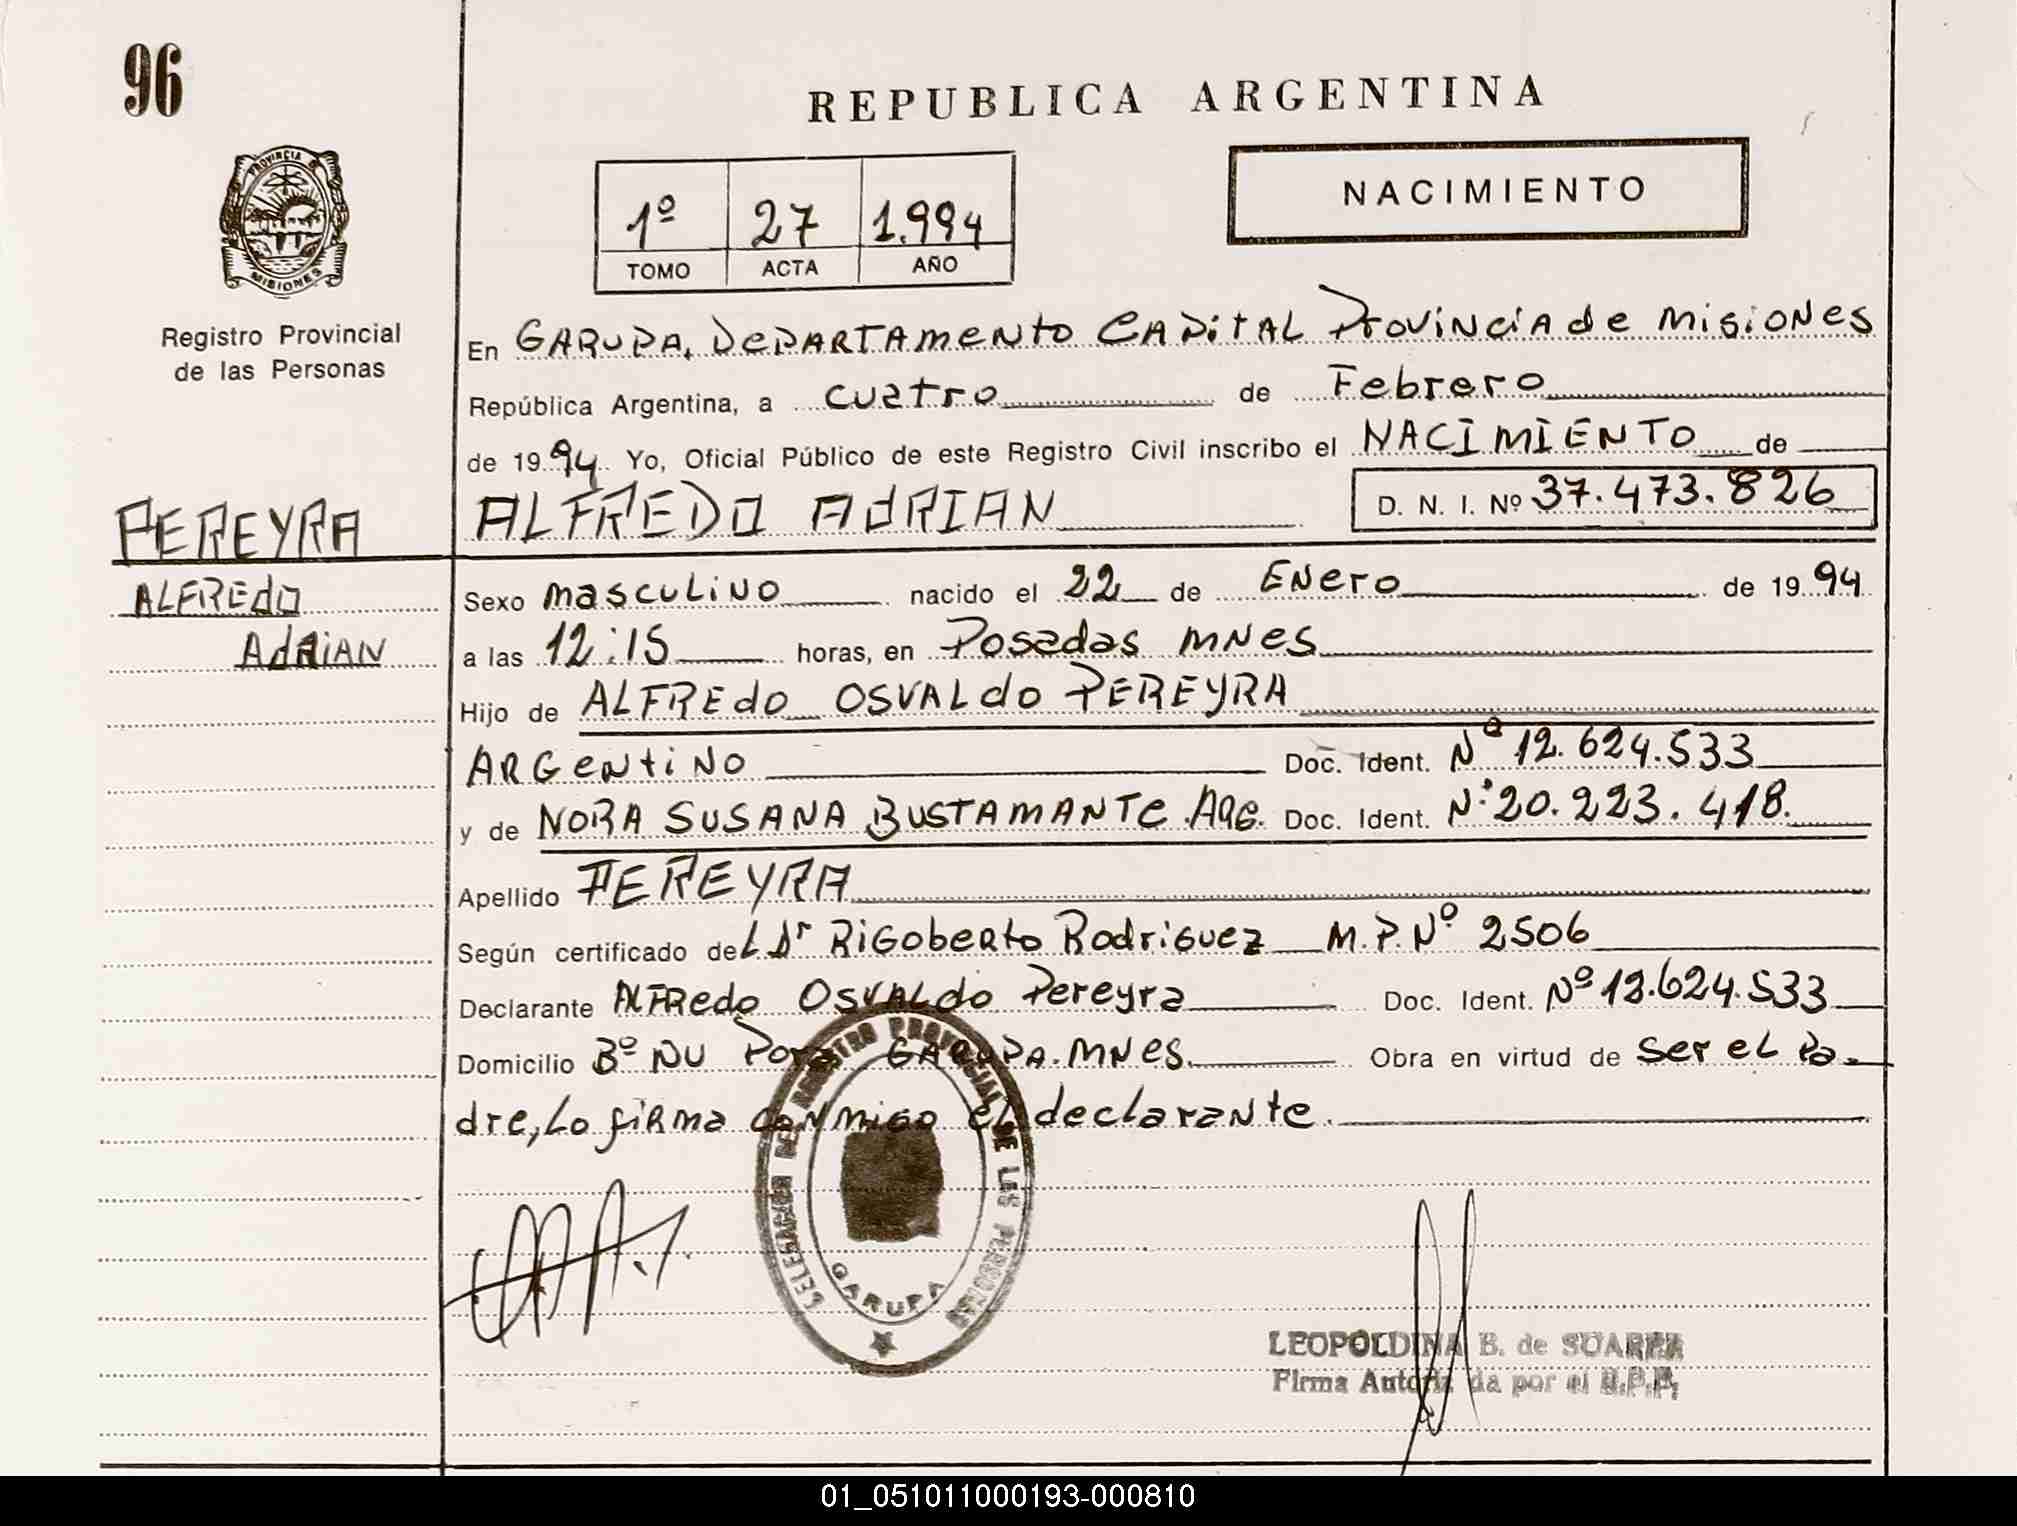 96
REPUBLICA ARGENTINA
NACIMIENTO
1º 27 1.994
TOMO ACTA AÑO
PROVINCIA DE MISIONES
Registro Provincial
de las Personas
En GARUPA, DEPARTAMENTO CAPITAL PROVINCIA de MISIONES
República Argentina, a cuatro de Febrero
de 1994 Yo, Oficial Público de este Registro Civil inscribo el NACIMIENTO de
PEREYRA ALFREDO ADRIAN D. N. I. Nº 37.473.826
ALFREDO
ADRIAN
Sexo masculino nacido el 22 de Enero de 1994
a las 12:15 horas, en Posadas MNES
Hijo de ALFREDO OSVALDO PEREYRA
ARGENTINO Doc. Ident. Nº 12.624.533
y de NORA SUSANA BUSTAMANTE ARG. Doc. Ident. Nº 20.223.418.
Apellido PEREYRA
Según certificado deL Dr RIGOBERTO RODRIGUEZ M.P. Nº 2506
Declarante ALFREDO OSVALDO Pereyra Doc. Ident. Nº 12.624.533
Domicilio Bº ÑU Pora GARUPA. MNES. Obra en virtud de ser el Pa-
dre, Lo firma CONMIGO el declarante.
DELEGACION DEL REGISTRO PROVINCIAL DE LAS PERSONAS
GARUPA
LEOPOLDINA B. de SUAREZ
Firma Autorizada por el R.P.P.
01_051011000193-000810